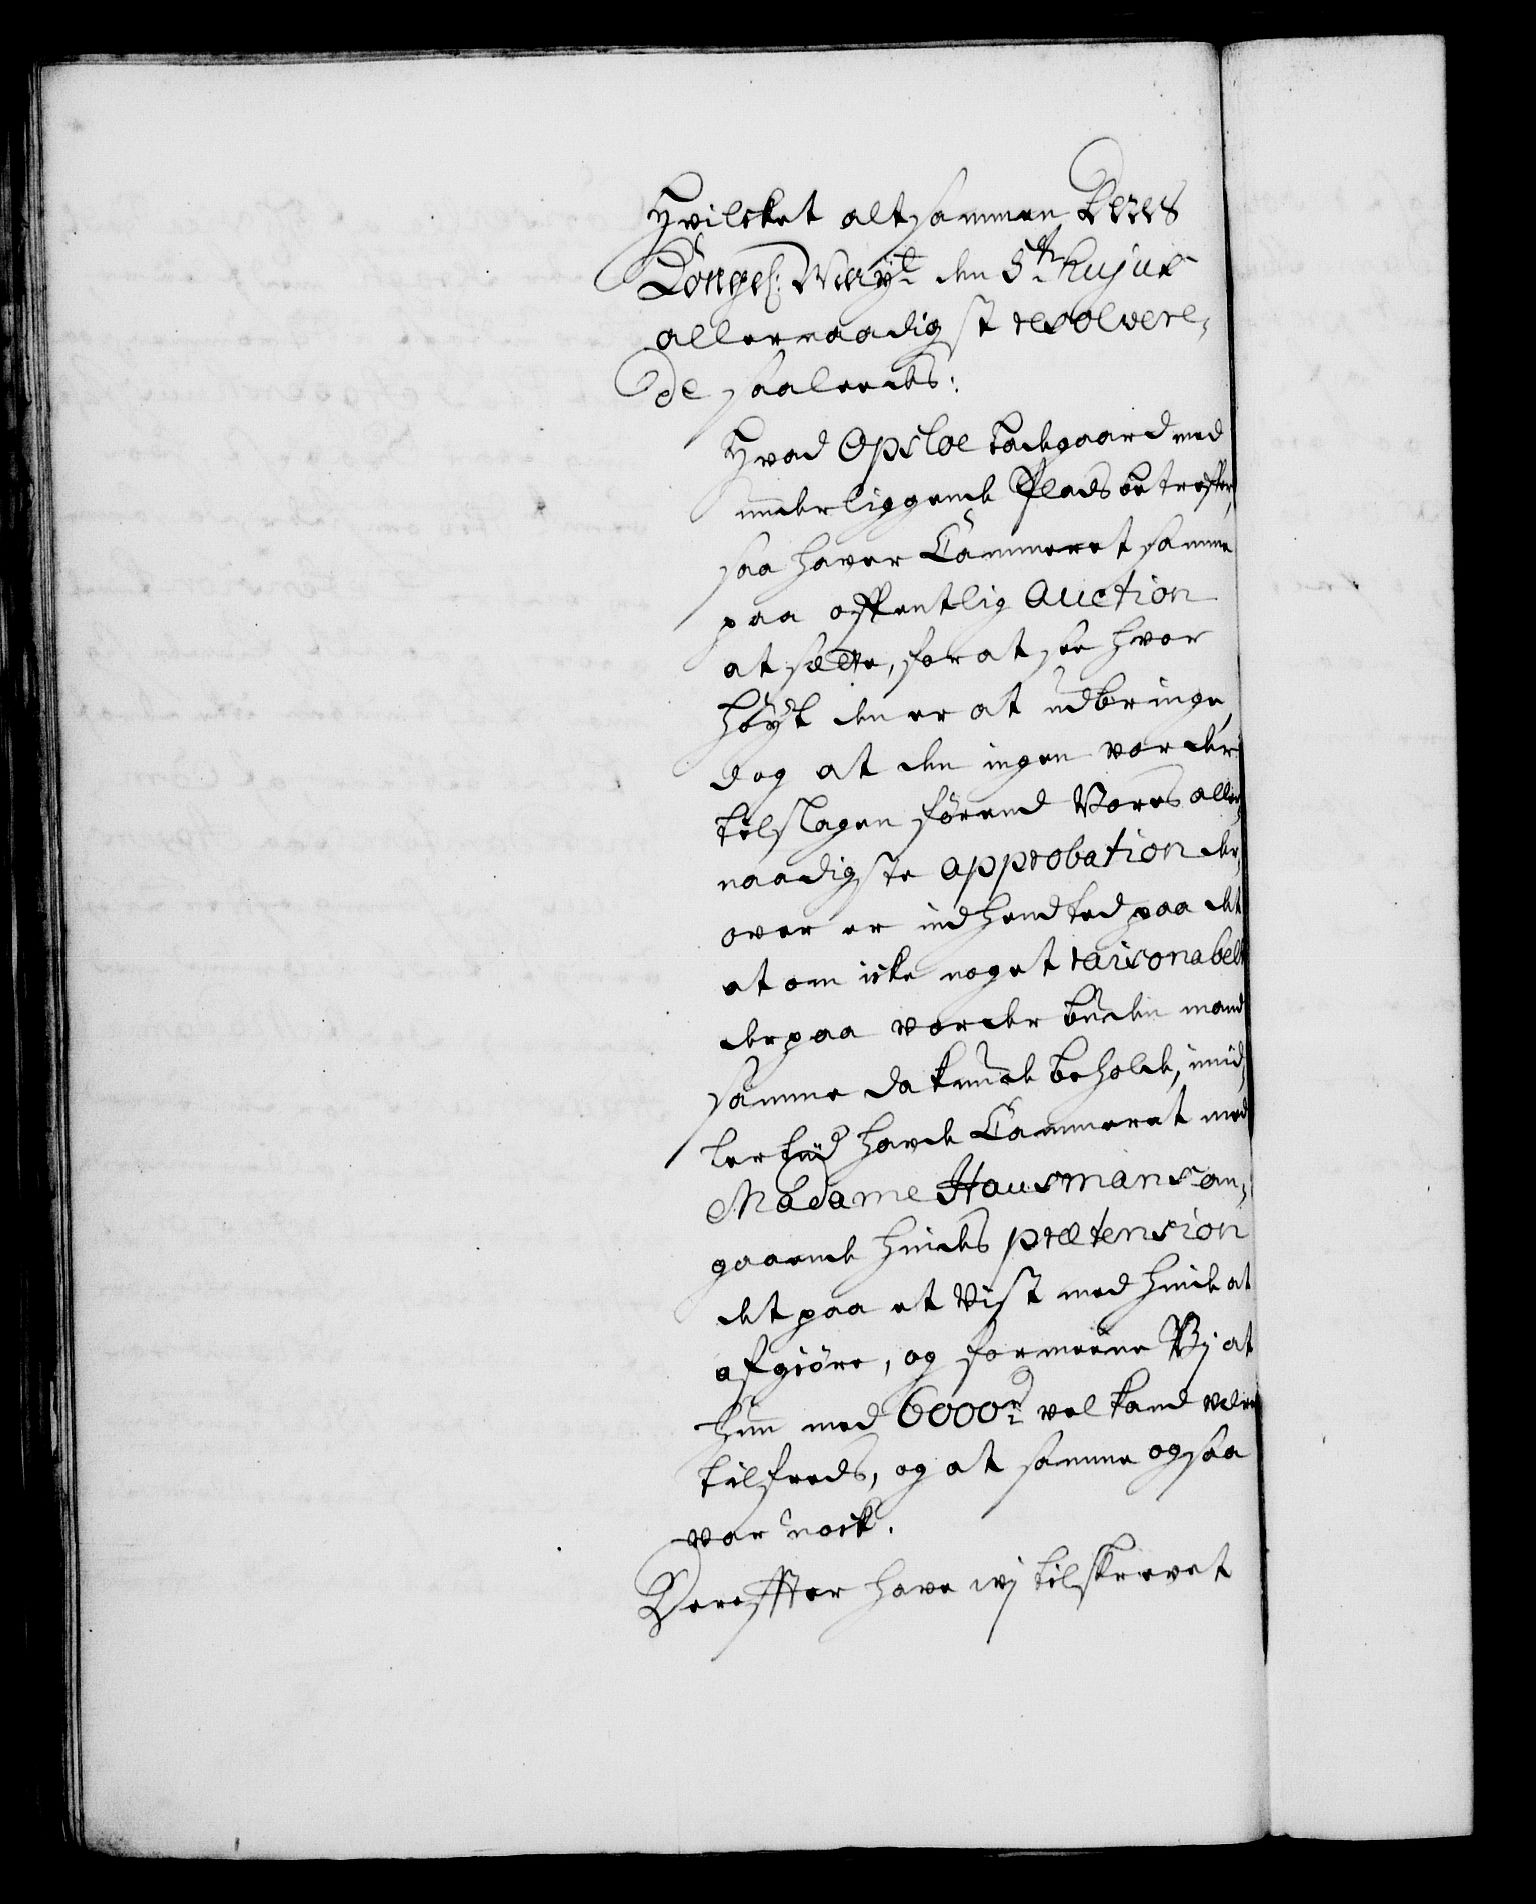 Hvilcket altsammen Deres
Konges: May.t den 5.te hujus
allernaadigst resolvere,
de saaleedes:
Hvad Opsloe Ladegaard med
underliggende Plads betreffer,
saa haver Cammeret samme
paa offentlig Auction
at sette, for at see hvor
høyt den er at udbringe,
dog at den ingen vorder
tilslagen førend Vores aller,
naadigste approbation der,
over er indhendted paa det
at om icke noget raisonabelt
derpaa vorder buden mand
samme da kunde beholde, imid,
lertiid hafde Cammeret med
Madame Hausmans an,
gaaende hindes prætension
det paa et Vist med hinde at
afgiøre, og formeene Vj at
hun med 6000 rd vel kand være
tilfreds, og at samme ogsaa
var nock.
Derefter have wj tilskrevet